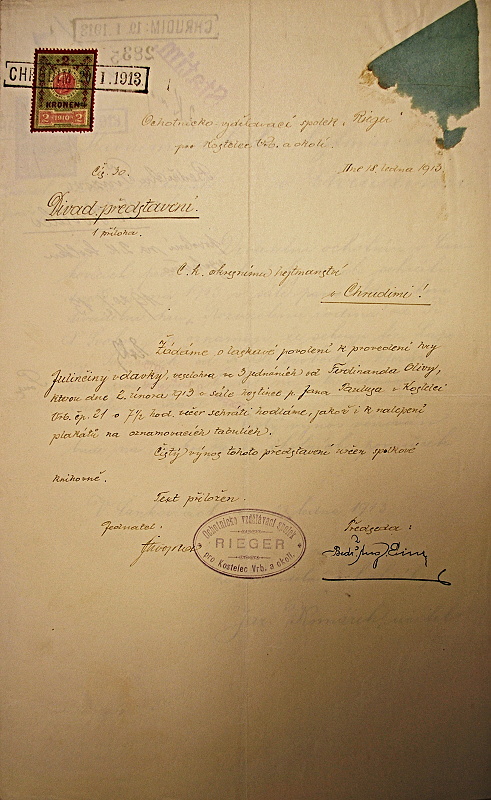 CHRUDIM 20. I. 1913
2
KRONEN
2 1910 2
Ochotnicko-vzdělávací spolek "Rieger"
pro Kostelec Vrb. a okolí.
Čís. 30.
Dne 18. ledna 1913.
Divad. představení.
1 příloha.
C. k. okresnímu hejtmanství
v Chrudimi!
Žádáme o laskavé povolení k provedení hry
Julinčiny vdavky, veselohra ve 3 jednáních od Ferdinanda Olivy,
kterou dne 2. února 1913 v sále hostince p. Jana Pauluse v Kostelci
Vrb. čp. 21 o 7½ hod. večer sehráti hodláme, jakož i k nalepení
plakátů na oznamovacích tabulích.
Čistý výnos tohoto představení určen spolkové
knihovně.
Text přiložen.
Jednatel:
Předseda:
Ochotnicko vzdělávací spolek
RIEGER
pro Kostelec Vrb. a okolí.
CHRUDIM 19. I. 1913
2835